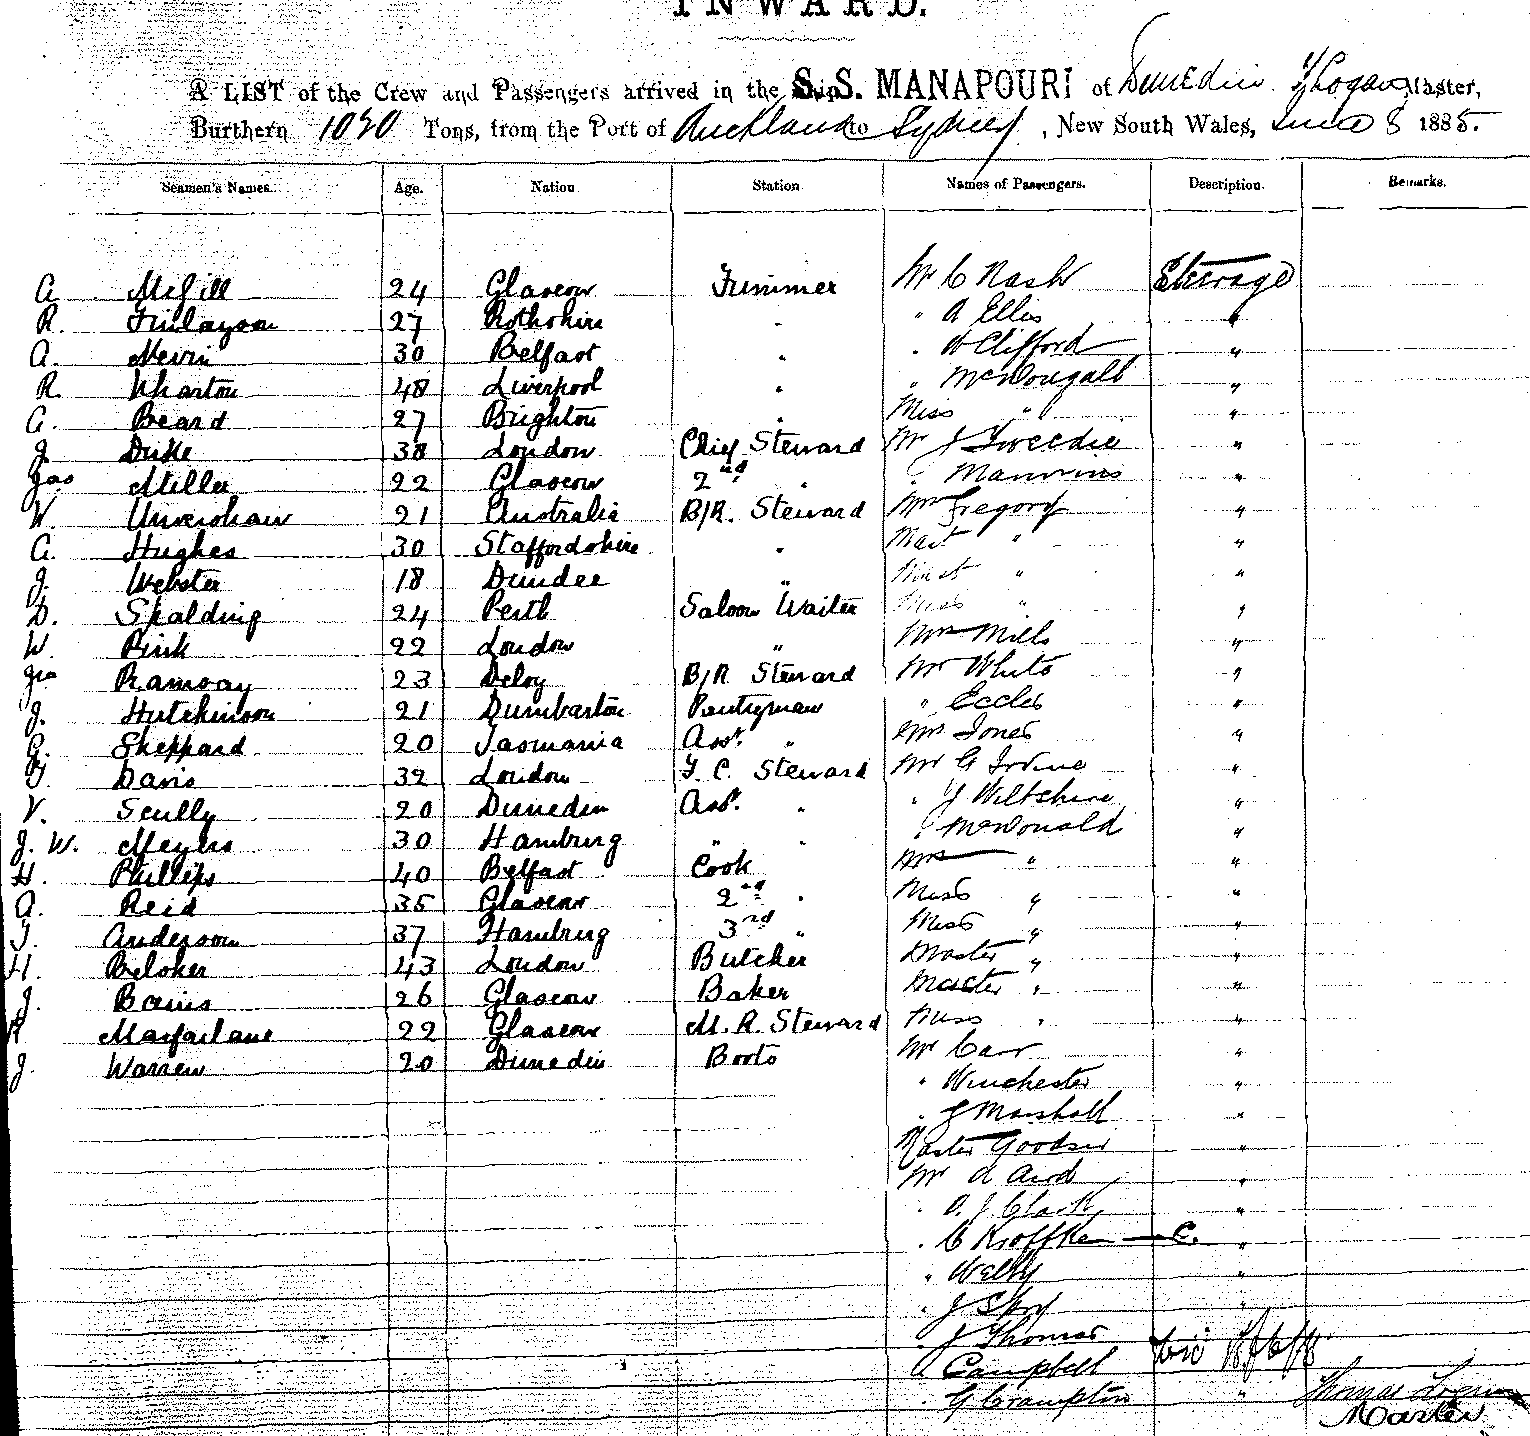 INWARD.
A LIST of the Crew and Passengers arrived in the S.S. MANAPOURI of Dunedin T Logan Master,
Burthern 1020 Tons, from the Port of Auckland to Sydney, New South Wales, June 8 1885.
Seamen's Names. Age. Nation Station Names of Passengers. Description. Remarks.
A. McGill 24 Glascow Trimmer Mr C Nash Steerage
R. Finlayson 27 Rothshire " " A Ellis "
A. Nevin 30 Belfast " " Clifford "
R. Wharton 48 Liverpool " " McDougall "
A. Beard 27 Brighton " Miss " "
J. Duke 38 London Chief Steward Mr J Tweedie "
Jas Miller 22 Glascow 2nd " " Manning "
W. Unvershaw 21 Australia B/R. Steward Mrs Gregory "
A. Hughes 30 Staffordshire " Mast " "
J. Webster 18 Dundee " " "
D. Spalding 24 Perth Saloon Waiter Miss " "
W. Pink 22 London " Mrs Mills "
Jas Ramsay 23 B/R Steward Mr White "
J. Hutchinson 21 Dumbarton Pantryman " Eccles "
G. Sheppard 20 Tasmania Asst. " Mrs Jones "
T. Davis 32 London F. C. Steward Mr G Irvine "
V. Scully 20 Dunedin Asst. " " J Wiltshire "
J. W. Meyers 30 Hamburg " " " McDonald "
H. Phillips 40 Belfast Cook Mrs " "
A. Reid 35 Glascow 2nd " Miss " "
T. Anderson 37 Hamburg 3rd " Miss " "
H. Belcher 43 London Butcher Master " "
J. Bains 26 Glascow Baker Master " "
R Macfarlane 22 Glascow M. R. Steward Miss " "
J. Warren 20 Dunedin Boots Mr Carr "
" Winchester "
" J Marshall "
Master "
Mr A Aird "
" A. J Clark "
" C Kroffke — C. "
" Welby "
" J "
J Thomas
A Campbell
" G Crampton "
Thomas Logan
Master